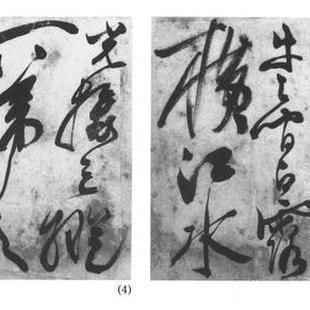 牛之間白露
橫江水
光接天縱
一葦之
(4)